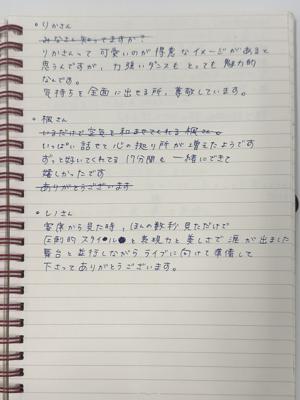 ・りかさん
みなさん知ってますか?
りかさんって可愛いのが得意なイメージがあると
思うんですが、力強いダンスもとっても魅力的
なんです。
気持ちを全面に出せる所、尊敬しています。
・楓さん
いるだけで空気を和ませてくれる楓さん。
いっぱい話せて心の拠り所が増えたようです
ずっと好いてくれてる 17分間も一緒にできて
嬉しかったです
ありがとうございます
・レノさん
客席から見た時、ほんの数秒見ただけで
圧倒的スタイルと表現力と美しさで涙が出ました
舞台と並行しながらライブに向けて準備して
下さってありがとうございます。